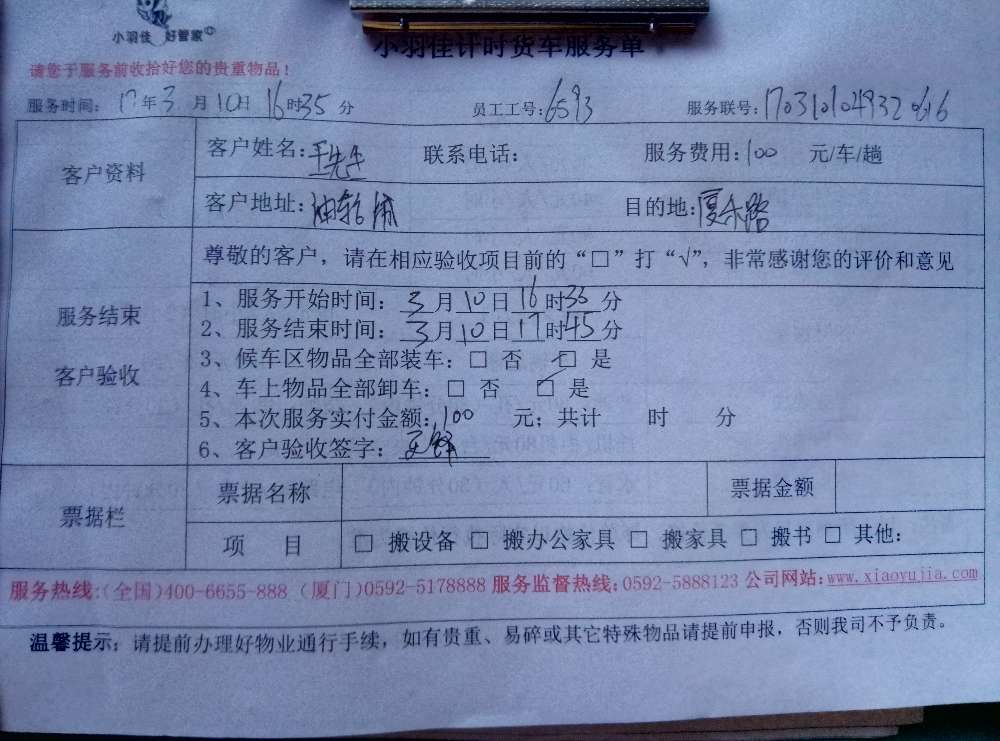 小羽佳 好管家
小羽佳计时货车服务单
请您于服务前收拾好您的贵重物品！
服务时间：17年3月10日16时35分 员工工号：6593 服务联号：170310104932 0616
客户资料
客户姓名：王先生 联系电话： 服务费用：100 元/车/趟
客户地址： 目的地：厦禾路
服务结束
客户验收
尊敬的客户，请在相应验收项目前的“□”打“√”，非常感谢您的评价和意见
1、服务开始时间：3月10日16时35分
2、服务结束时间：3月10日17时45分
3、候车区物品全部装车：□ 否 ☑ 是
4、车上物品全部卸车：□ 否 ☑ 是
5、本次服务实付金额：100 元；共计 时 分
6、客户验收签字：
票据栏
票据名称 票据金额
项 目 □ 搬设备 □ 搬办公家具 □ 搬家具 □ 搬书 □ 其他：
服务热线：(全国)400-6655-888 (厦门)0592-5178888 服务监督热线：0592-5888123 公司网站：www.xiaoyujia.com
温馨提示：请提前办理好物业通行手续，如有贵重、易碎或其它特殊物品请提前申报，否则我司不予负责。